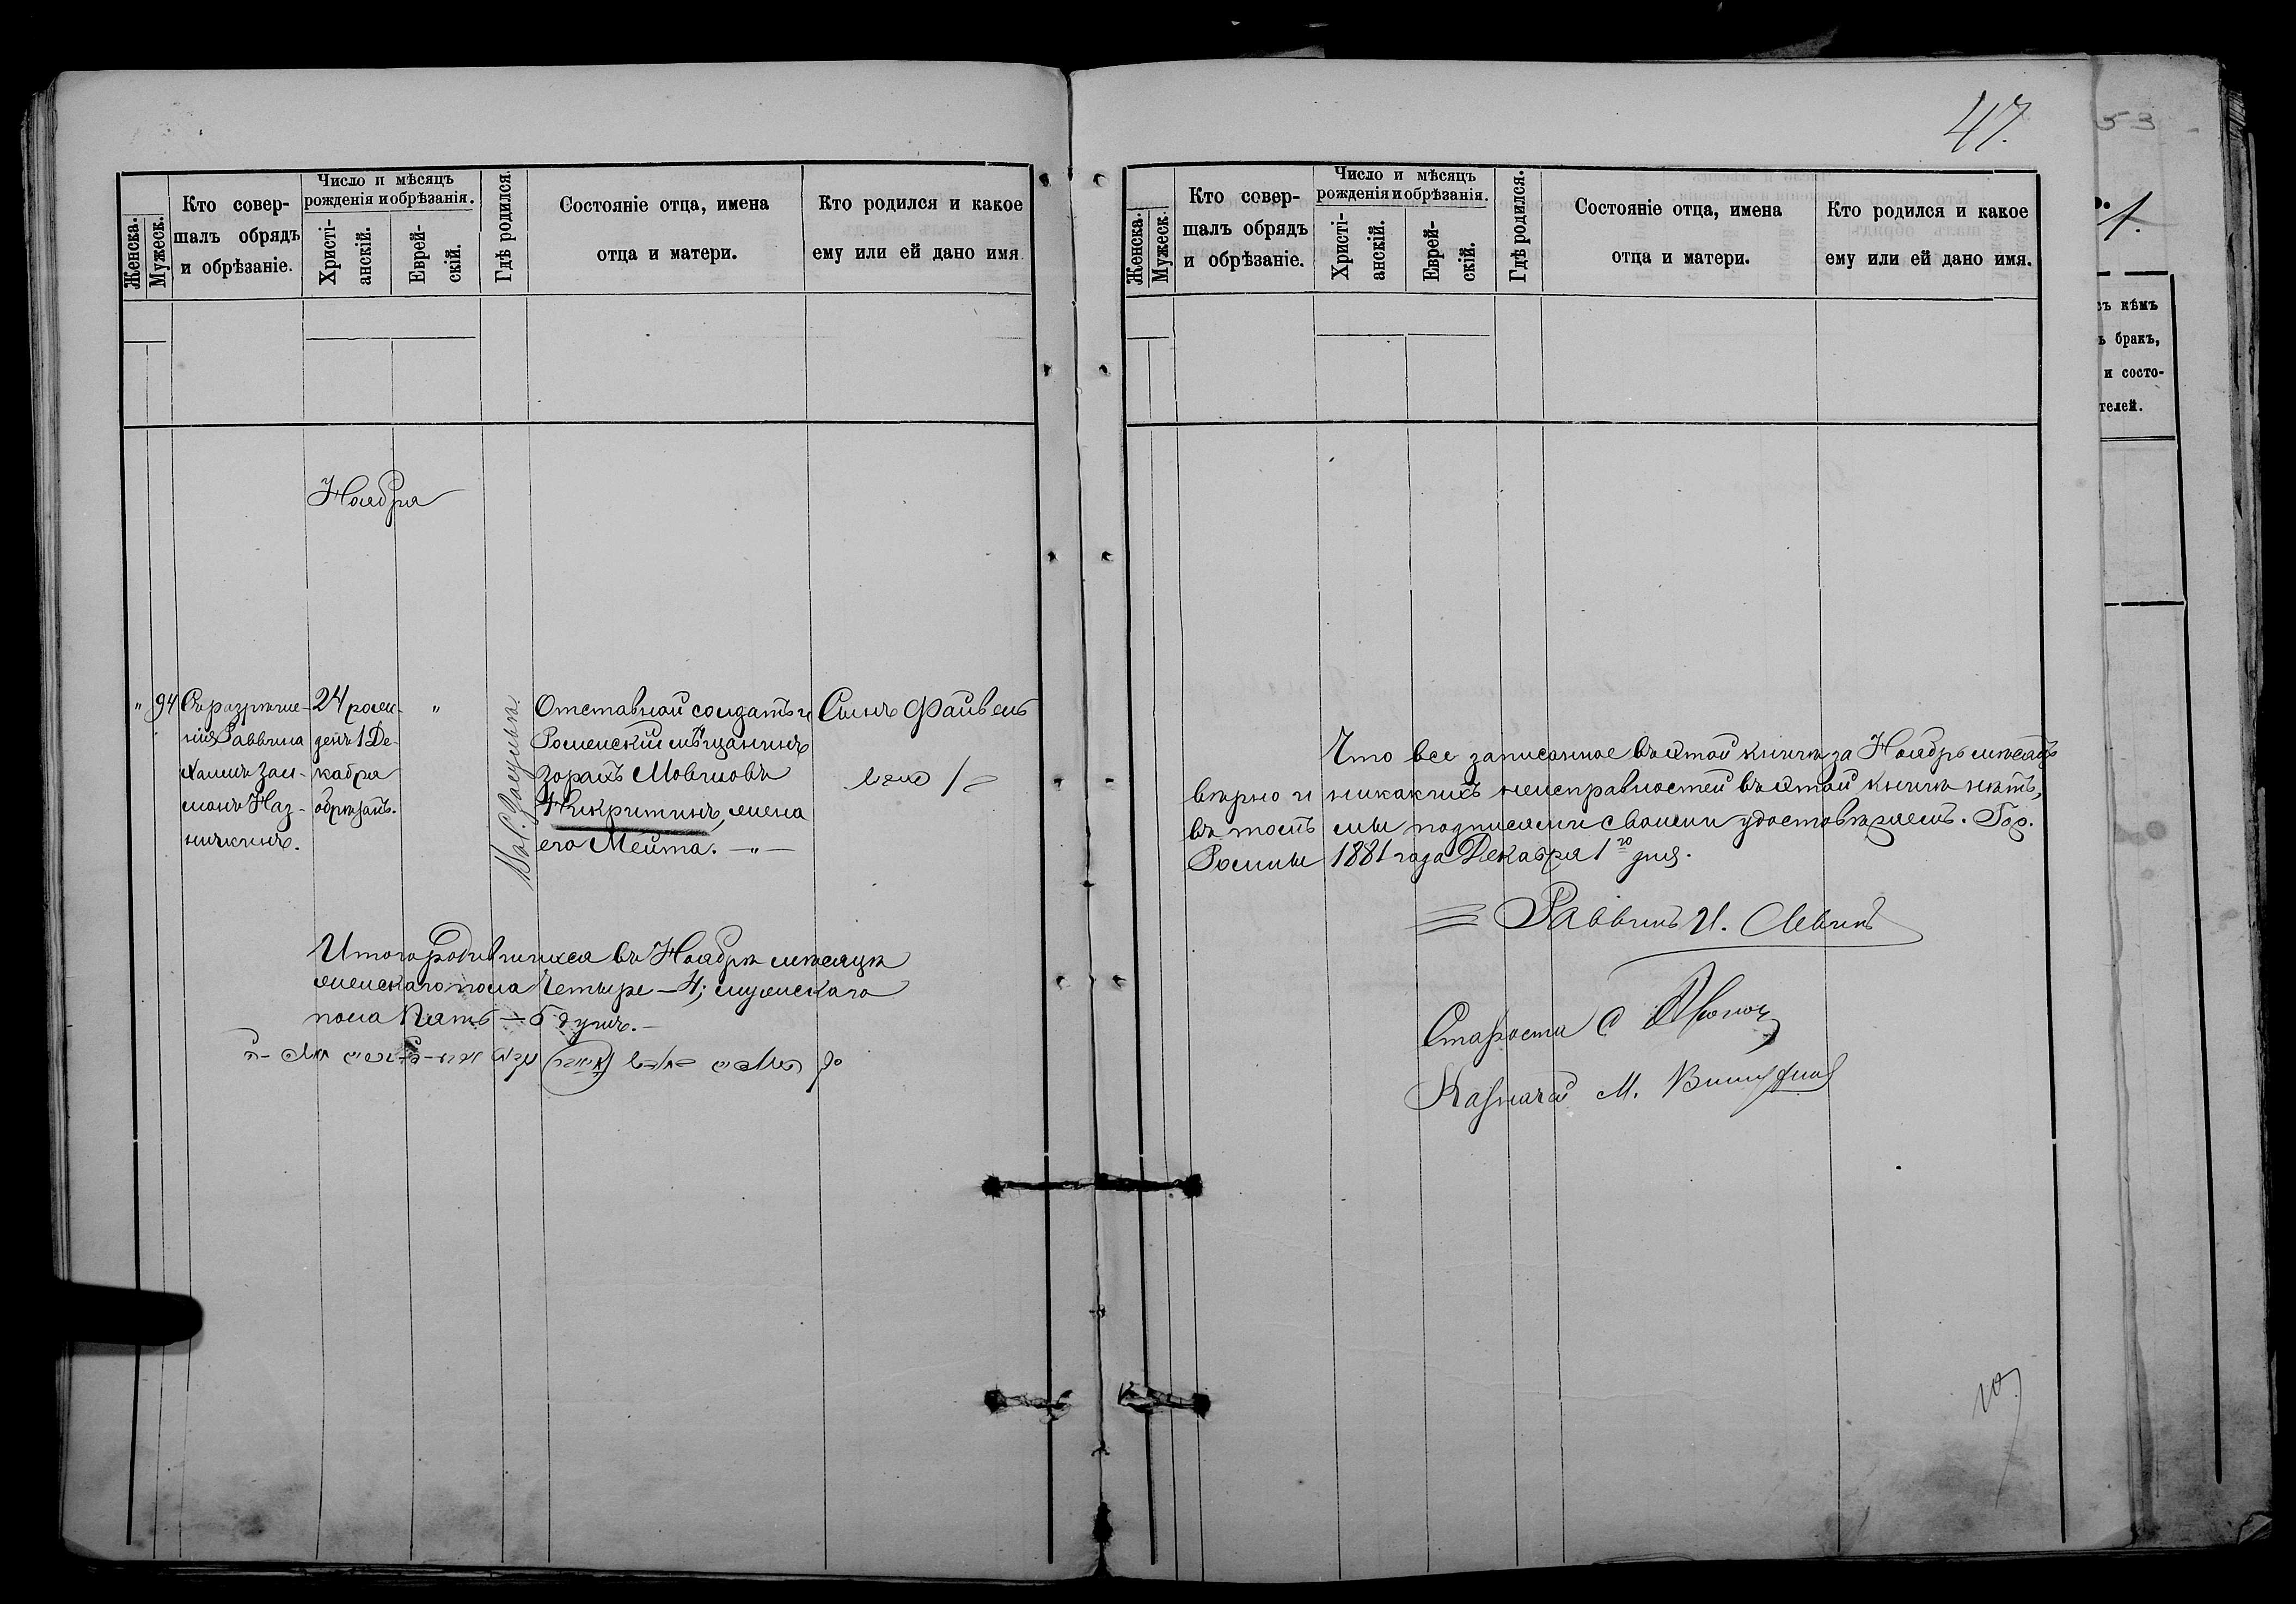 47.
53
1.
Женска.
Мужеск.
Кто совер-
шалъ обрядъ
и обрѣзаніе.
Число и мѣсяцъ
рожденія и обрѣзанія.
Христі-
анскій.
Еврей-
скій.
Гдѣ родился.
Состояніе отца, имена
отца и матери.
Кто родился и какое
ему или ей дано имя
Ноября
" 94
Съ разрѣше-
нія Раввина
Хаимъ Зал-
монъ Наз-
24 рож-
денъ 1 Де-
кабря
обрѣзанъ.
"
Отставной солдатъ и
Роменскій мѣщанинъ
Зорахъ Мовшовъ
Никритинъ, жена
его Мейта. — " —
Сынъ Файвель
Итого родившихся въ Ноябрѣ мѣсяцѣ
женскаго пола Четыре — 4; мужескаго
пола Пять — 5 душъ. —
Женска.
Мужеск.
Кто совер-
шалъ обрядъ
и обрѣзаніе.
Число и мѣсяцъ
рожденія и обрѣзанія.
Христі-
анскій.
Еврей-
скій.
Гдѣ родился.
Состояніе отца, имена
отца и матери.
Кто родился и какое
ему или ей дано имя.
Что все записанное въ этой книгѣ за Ноябрь мѣсяцъ
вѣрно и никакихъ неисправностей въ этой книгѣ нѣтъ,
въ томъ мы подписями своими удостовѣряемъ. Гор.
Ромны 1881 года Декабря 1го дня.
Раввинъ И. Левинъ
Староста
Казначей М.
ъ кѣмъ
ъ бракъ,
и состо-
телей.